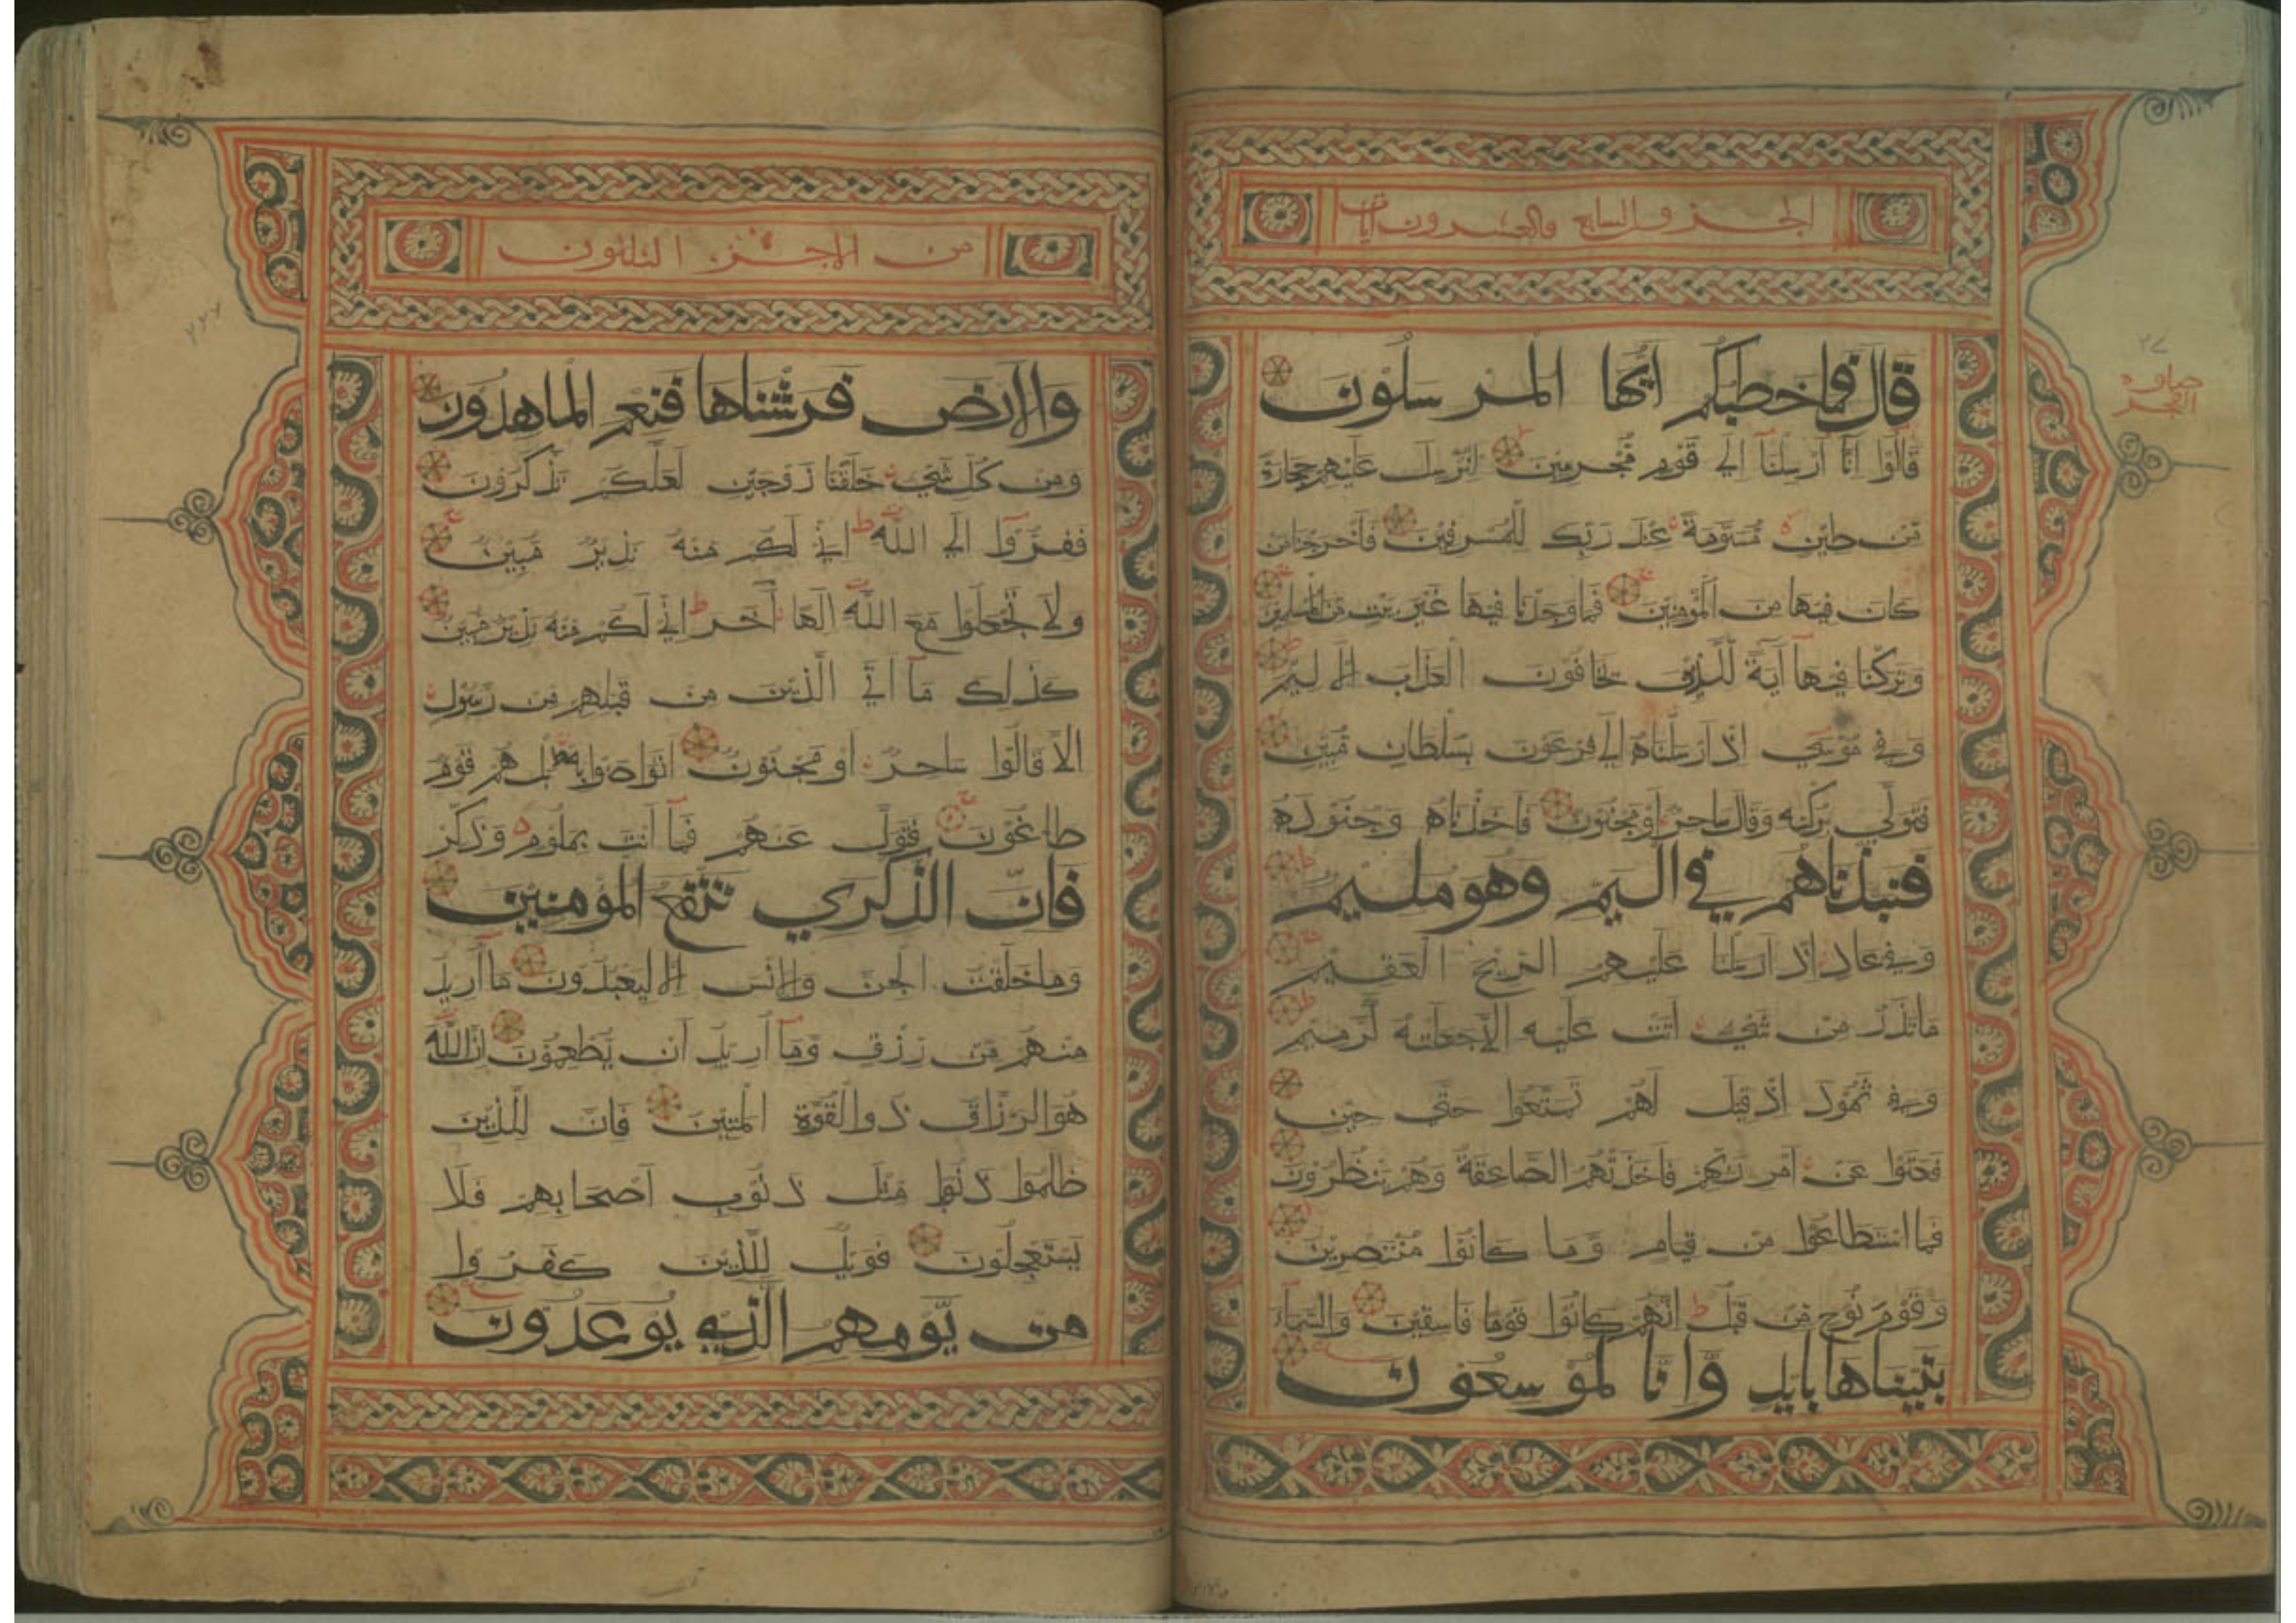 الجزو السابع والعشرون
قال فما خطبكم ايها المرسلون
قالوا انا ارسلنا الي قوم مجرمين لنرسل عليهم حجارة
من طين مسومة عند ربك للمسرفين فاخرجنا من
كان فيها من المؤمنين فما وجدنا فيها غير بيت من المسلمين
وتركنا فيها آية للذين يخافون العذاب الاليم
وفي موسي اذ ارسلناه الي فرعون بسلطان مبين
فتولي بركنه وقال ساحر او مجنون فاخذناه وجنوده
فنبذناهم في اليم وهو مليم
وفي عاد اذ ارسلنا عليهم الريح العقيم
ما تذر من شيء اتت عليه الا جعلته كالرميم
وفي ثمود اذ قيل لهم تمتعوا حتي حين
فعتوا عن امر ربهم فاخذتهم الصاعقة وهم ينظرون
فما استطاعوا من قيام وما كانوا منتصرين
وقوم نوح من قبل انهم كانوا قوما فاسقين والسماء
بنيناها بايد وانا لموسعون
٢٧
من الاجزء الثلثون
والارض فرشناها فنعم الماهدون
ومن كل شيء خلقنا زوجين لعلكم تذكرون
ففروا الي الله اني لكم منه نذير مبين
ولا تجعلوا مع الله الها آخر اني لكم منه نذير مبين
كذلك ما اتي الذين من قبلهم من رسول
الا قالوا ساحر او مجنون اتواصوا به بل هم قوم
طاغون فتول عنهم فما انت بملوم وذكر
فان الذكري تنفع المؤمنين
وما خلقت الجن والانس الا ليعبدون ما اريد
منهم من رزق وما اريد ان يطعمون ان الله
هو الرزاق ذو القوة المتين فان للذين
ظلموا ذنوبا مثل ذنوب اصحابهم فلا
يستعجلون فويل للذين كفروا
من يومهم الذي يوعدون